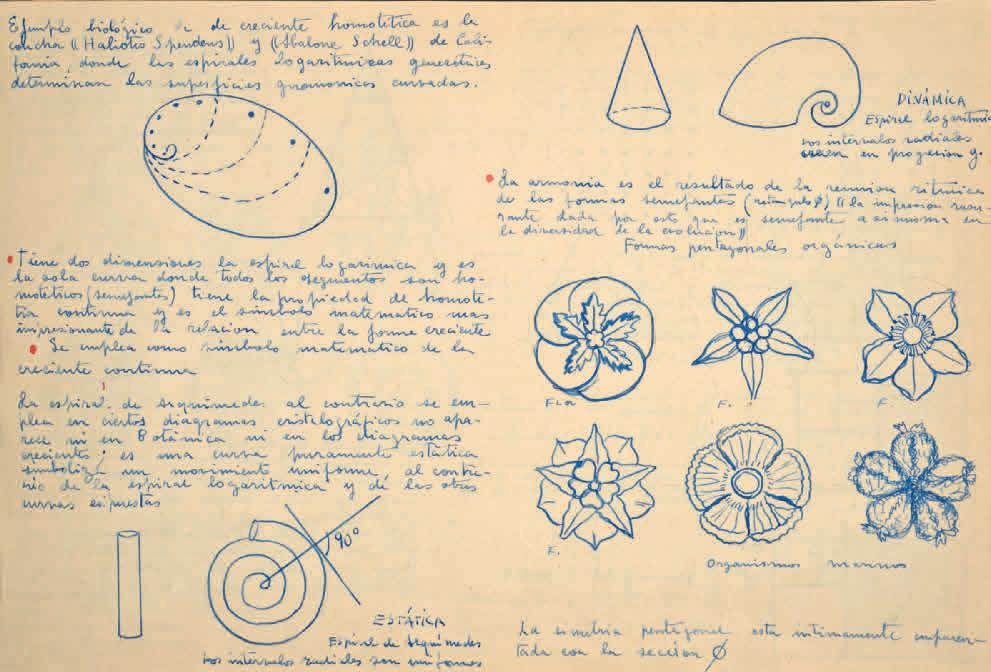 Ejemplo biológico de creciente homotética es la
concha ((Haliotis Spendens)) y ((Abalone Schell)) de Cali-
fornia, donde las espirales logaritmicas generatrices
determinan las superficies gnomonicas curvadas.
Tiene dos dimensiones la espiral logarimica y es
la sola curva donde todos los segmentos son ho-
motéticos (semejantes) tiene la propiedad de homote-
tia continua y es el simbolo matematico mas
impresionante de la relacion entre la forma creciente
Se emplea como simbolo matematico de la
creciente continua
La espiral de Arquimedes al contrario se em-
plea en ciertos diagramas cristalográficos no apa-
rece ni en Botánica ni en los diagramas
crecientes; es una curva puramente estática
simboliza un movimiento uniforme, al contra-
rio de la espiral logaritmica y de las otras
curvas expuestas
90°
ESTÁTICA
Espiral de Arquimedes
Los intervalos radiales son uniformes
DINÁMICA
Espiral logaritmica
Los intervalos radiales
crecen en progresion g.
La armonia es el resultado de la reunion ritmica
de las formas semejantes (rectangulo Ø) ((la impresión
dada por esto que es semejante a si misma en
la diversidad de la evolucion))
Formas pentagonales orgánicas
Flor
F.
F.
F.
Organismos marinos
La simetria pentagonal esta intimamente emparen-
tada con la seccion Ø